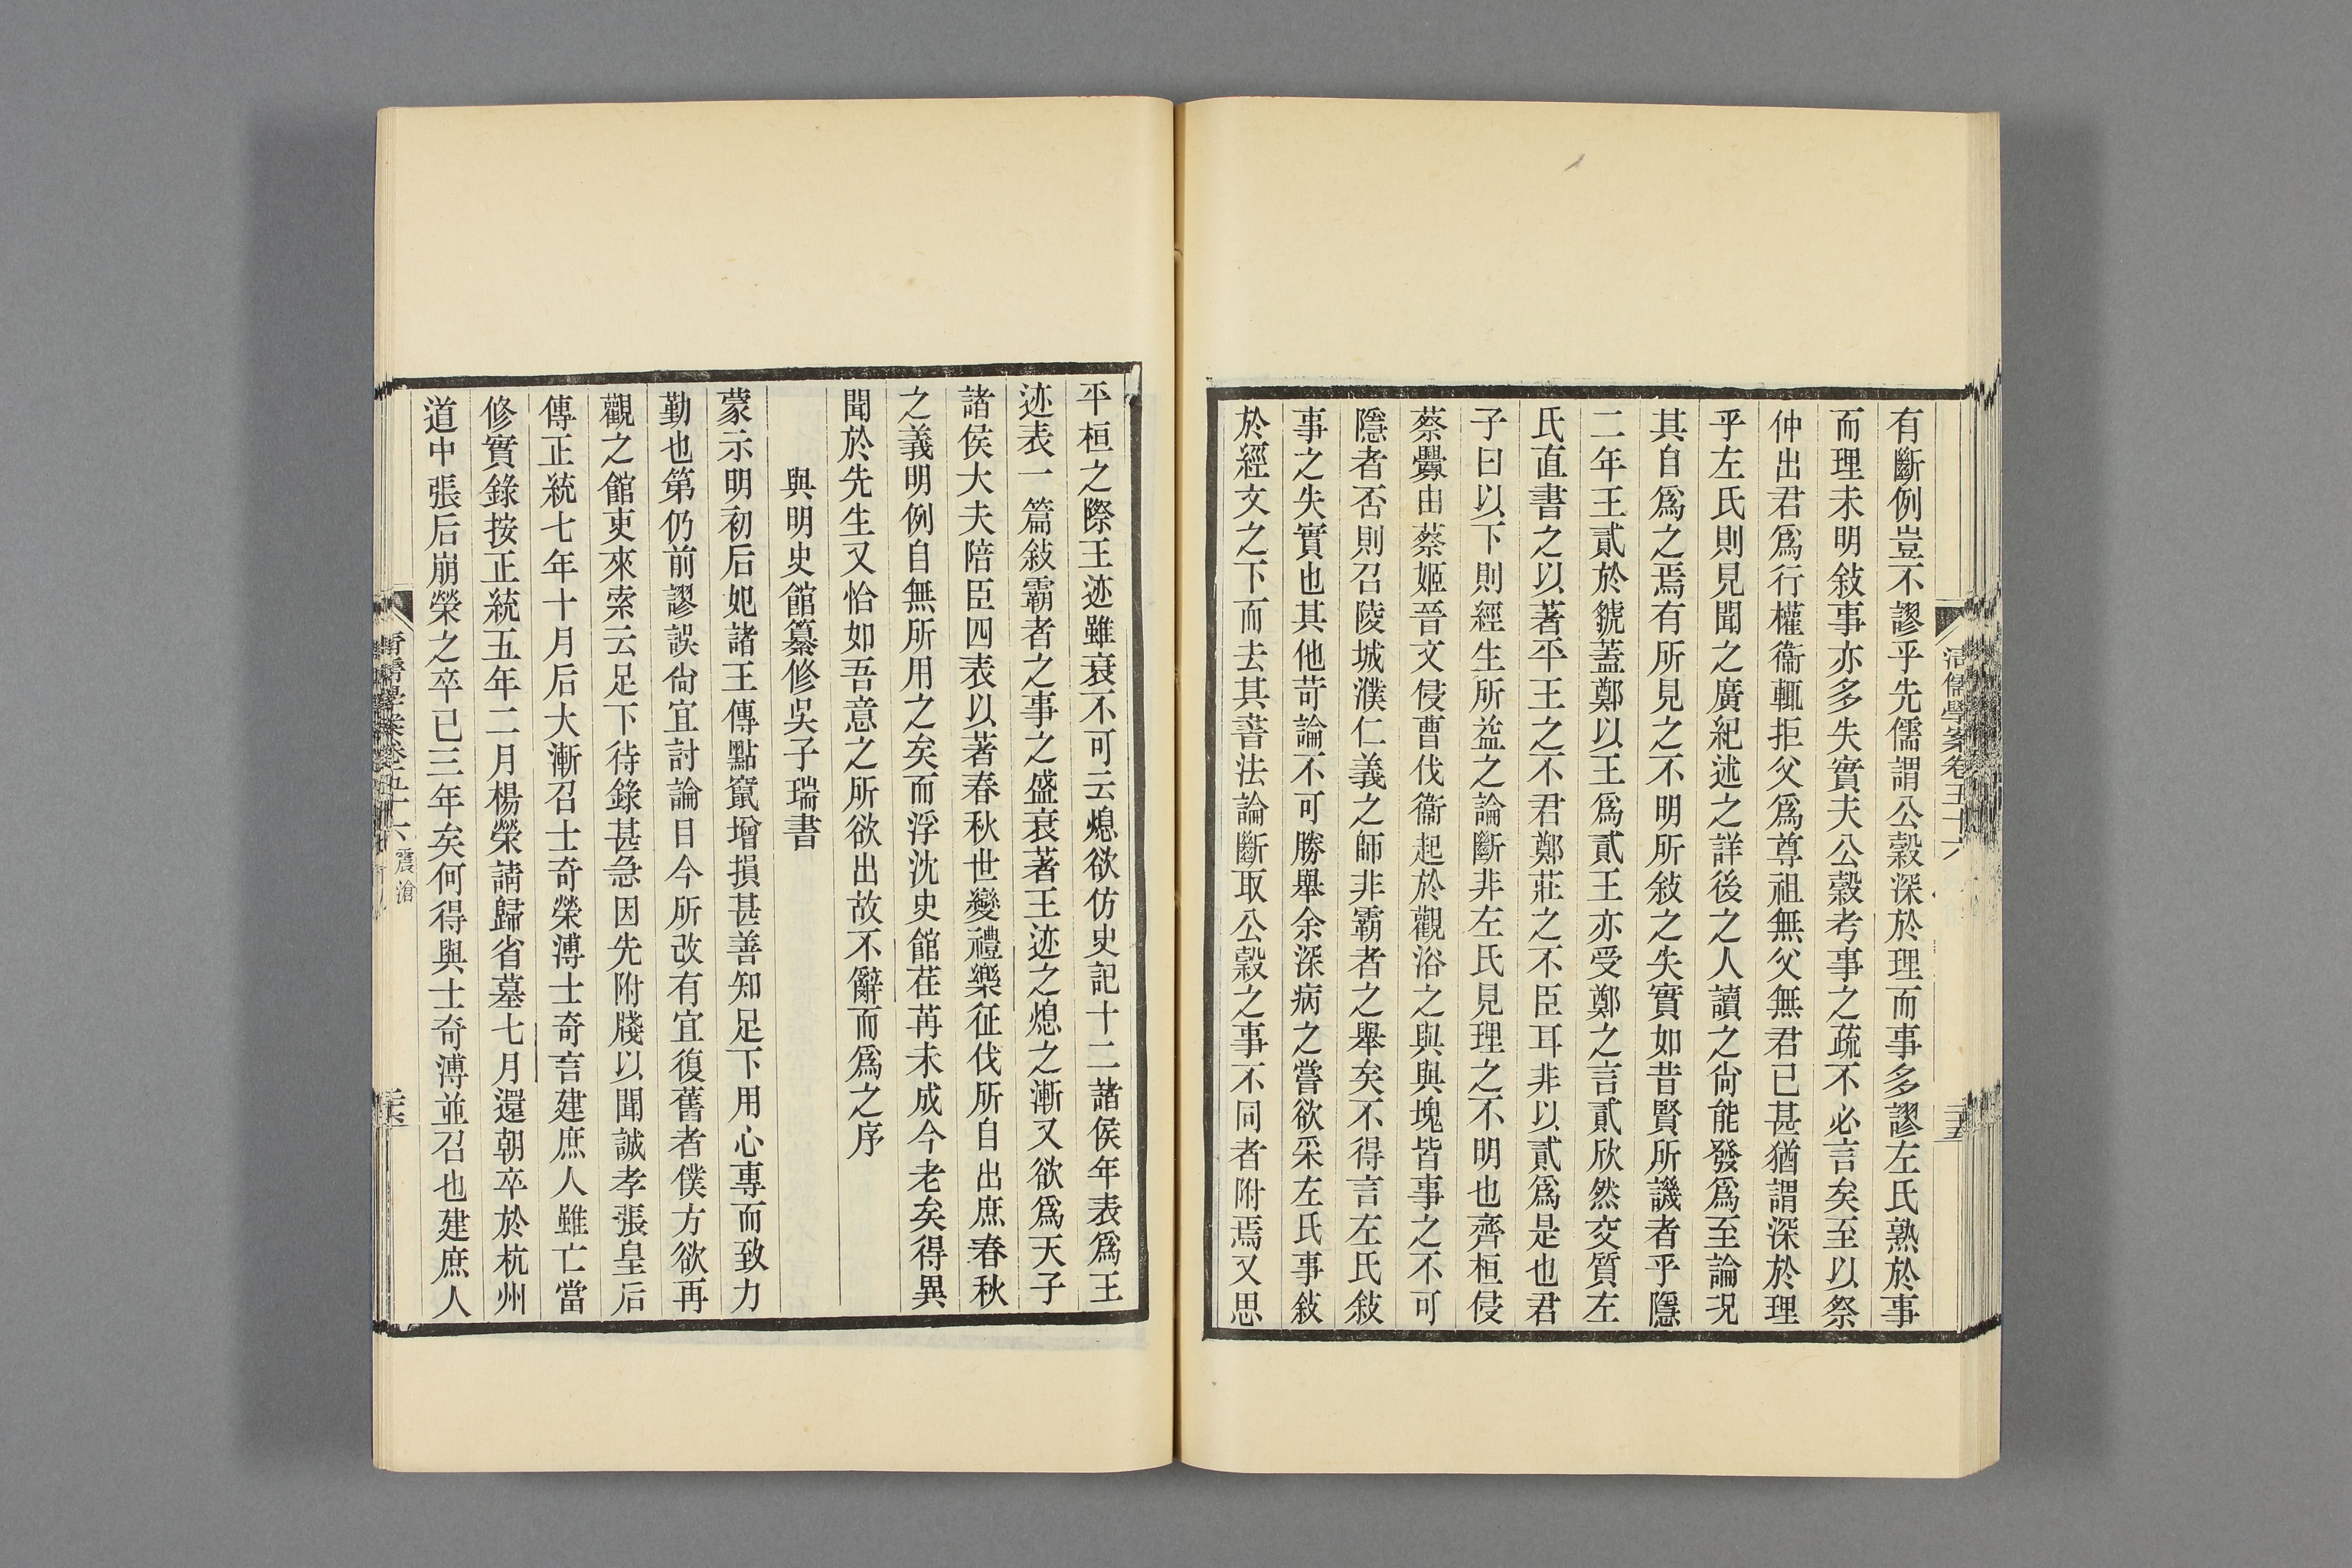 有斷例豈不謬乎先儒謂公穀深於理而事多謬左氏熟於事
而理未明敍事亦多失實夫公穀考事之疏不必言矣至以祭
仲出君爲行權衞輒拒父爲尊祖無父無君已甚猶謂深於理
乎左氏則見聞之廣紀述之詳後之人讀之尙能發爲至論況
其自爲之焉有所見之不明所敍之失實如昔賢所譏者乎隱
二年王貳於虢蓋鄭以王爲貳王亦受鄭之言貳欣然交質左
氏直書之以著平王之不君鄭莊之不臣耳非以貳爲是也君
子曰以下則經生所益之論斷非左氏見理之不明也齊桓侵
蔡釁由蔡姬晉文侵曹伐衞起於觀浴之與與塊皆事之不可
隱者否則召陵城濮仁義之師非霸者之舉矣不得言左氏敍
事之失實也其他苛論不可勝舉余深病之嘗欲采左氏事敍
於經文之下而去其書法論斷取公穀之事不同者附焉又思
清儒學案卷五十六
二十五
平桓之際王迹雖衰不可云熄欲仿史記十二諸侯年表爲王
迹表一篇敍霸者之事之盛衰著王迹之熄之漸又欲爲天子
諸侯大夫陪臣四表以著春秋世變禮樂征伐所自出庶春秋
之義明例自無所用之矣而浮沈史館荏苒未成今老矣得異
聞於先生又恰如吾意之所欲出故不辭而爲之序
與明史館纂修吳子瑞書
蒙示明初后妃諸王傳點竄增損甚善知足下用心專而致力
勤也第仍前謬誤尙宜討論目今所改有宜復舊者僕方欲再
觀之館吏來索云足下待錄甚急因先附牋以聞誠孝張皇后
傳正統七年十月后大漸召士奇榮溥士奇言建庶人雖亡當
修實錄按正統五年二月楊榮請歸省墓七月還朝卒於杭州
道中張后崩榮之卒已三年矣何得與士奇溥並召也建庶人
清儒學案卷五十六 震滄
二十六